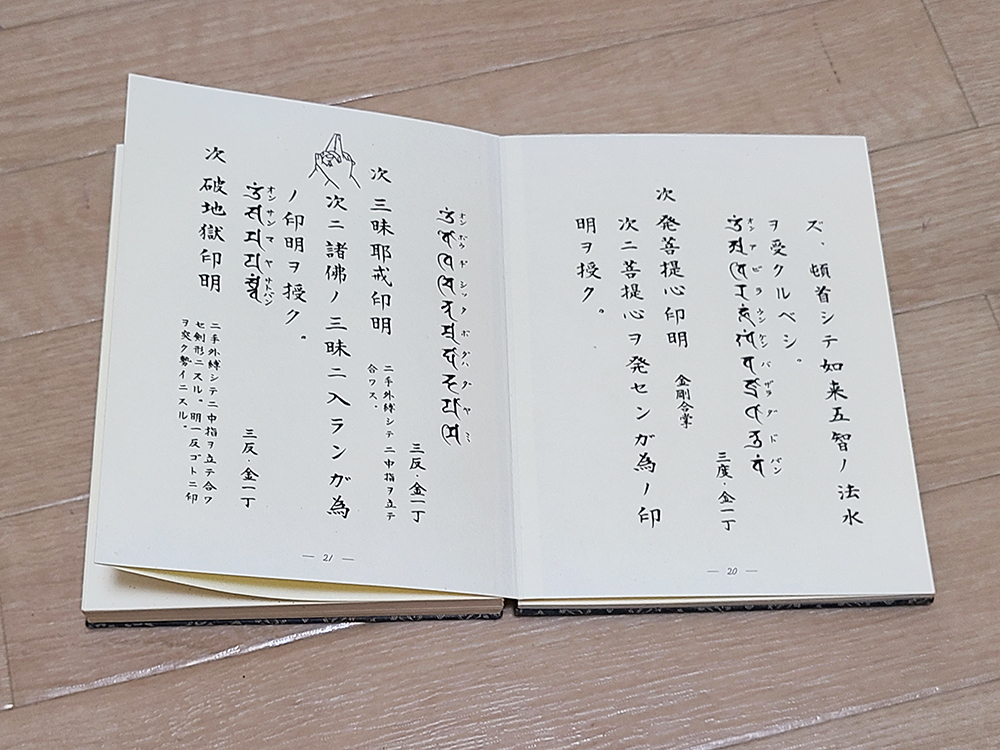 ズ、頓首シテ如来五智ノ法水
ヲ受クルベシ。
オン ア ビ ラ ウン ケン バ ザラ ダ ド バン
三度・金一丁
次 発菩提心印明 金剛合掌
次ニ菩提心ヲ発センガ為ノ印
明ヲ授ク。
― 20 ―
オン ボウ ヂ シッ タ ボ ダ ハ ダ ヤ ミ
三反・金一丁
次 三昧耶戒印明 二手外縛シテ二中指ヲ立テ
合ワス。
次ニ諸佛ノ三昧ニ入ランガ為
ノ印明ヲ授ク。
オン サン マ ヤ サトバン
三反・金一丁
次 破地獄印明 二手外縛シテ二中指ヲ立テ合ワ
セ剣形ニスル。明一反ゴトニ印
ヲ突ク勢イニスル。
― 21 ―